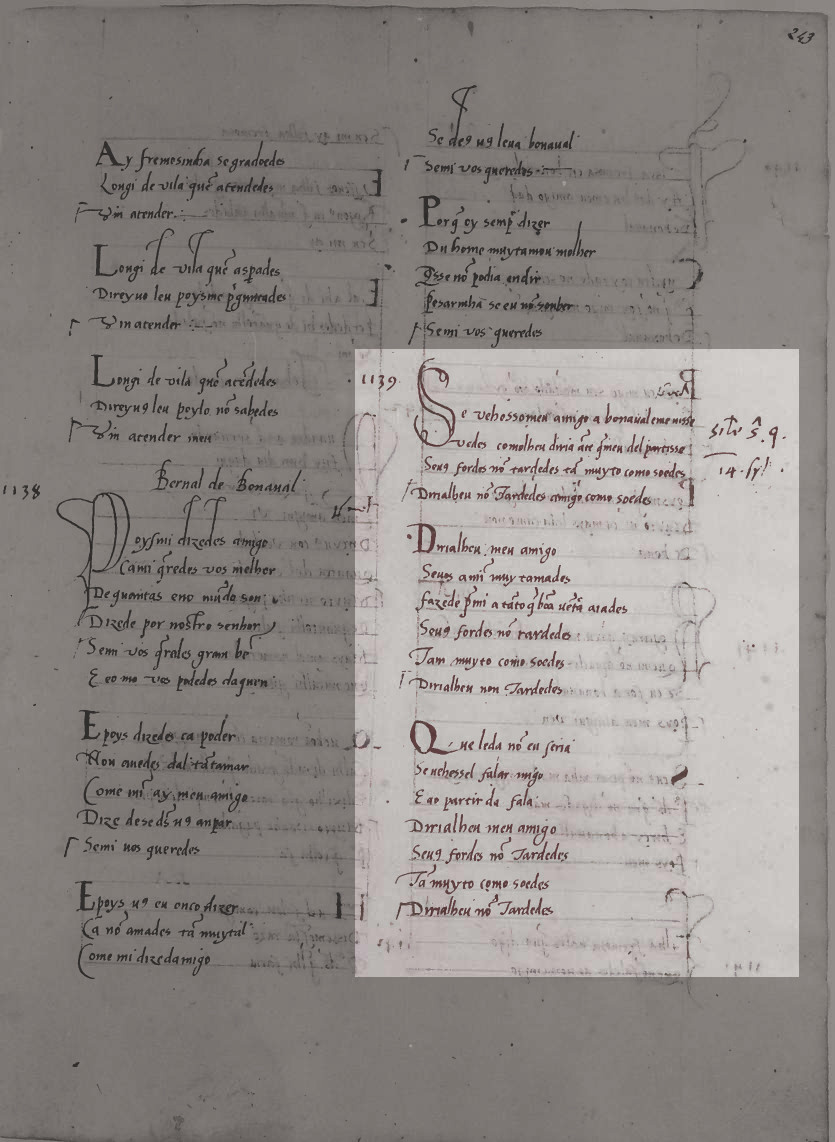 243
Ay fremosinha se gradoedes
Longi de vila quē atendedes
Vin atender.
Longi de vila quē asp̄ades
Direyuo leu poysme p̄guntades
Vin atender
Longi de vila quē atēdedes
Direyuꝯ leu poylo nō sabedes
Vin atender meu
1138
Bernal de Bonaual
Poysmi dizedes amigo
Cami q̄redes vos melhor
De quantas eno mūdo son
Dizede por nostro senhor
Semi vos q̄redes gram bē
E eo mo vos podedes daquen
E poys dizedes ca poder
Non auedes dal tā tamar
Come mī ay meu amigo
Dize de se dš uꝯ anpar
Semi uos queredes
E poys uꝯ eu onco dizer
Ca nō amades tā muytal
Come mi dized amigo
Se deꝯ uꝯ leua bonaual
Semi vos queredes
Por q̄ oy semp̄ dizer
Du home muytamou molher
Q̄sse nō podia endir
Pesarmha se eu nō souber
Semi vos queredes
1139
Se vehessomeu amigo a bonaualeme uisse
Vedes comolheu diria āte q̄meu del partisse
Seuꝯ fordes nō tardedes tā muyto como soedes
Dirialheu nō Tardedes amigo como soedes
Dirialheu meu amigo
Seuos a mī muy tamades
fazede p̄mi a tāto q̄ bōa uētā aiades
Seuꝯ fordes nō tardedes
Tam muyto como soedes
Dirialheu non Tardedes
Que leda nō eu seria
Se uehessel falar migo
E ao partir da fala
Dirialheu meu amigo
Seuꝯ fordes nō Tardedes
Tā muyto como soedes
Dirialheu nō Tardedes